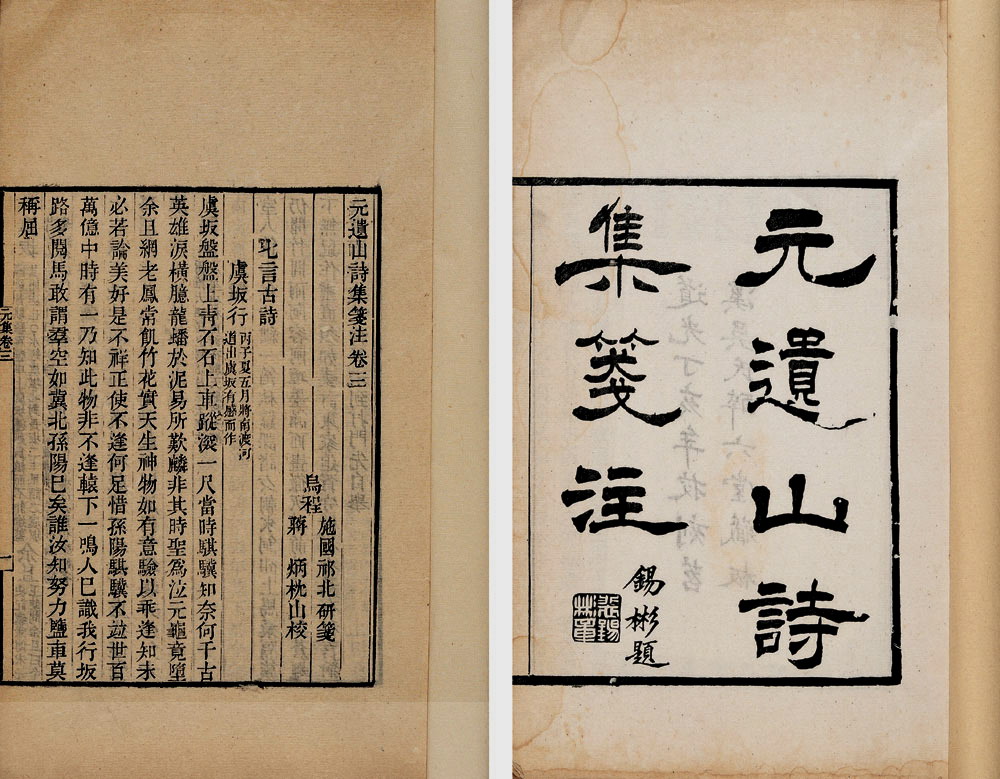 元遺山詩
集箋注
錫彬題
元遺山詩集箋注卷三
烏程
施國祁北研箋
蔣炳枕山校
七言古詩
虞坂行
丙子夏五月將南渡河
道出虞坂有感而作
虞坂盤盤上靑石石上車蹤深一尺當時騏驥知奈何千古
英雄淚橫臆龍蟠於泥易所歎麟非其時聖爲泣元龜竟墮
余且網老鳳常飢竹花實天生神物如有意驗以乖逢知未
必若論美好是不祥正使不逢何足惜孫陽騏驥不竝世百
萬億中時有一乃知此物非不逢轅下一鳴人已識我行坂
路多閱馬敢謂羣空如冀北孫陽已矣誰汝知努力鹽車莫
稱屈
元集卷三
一